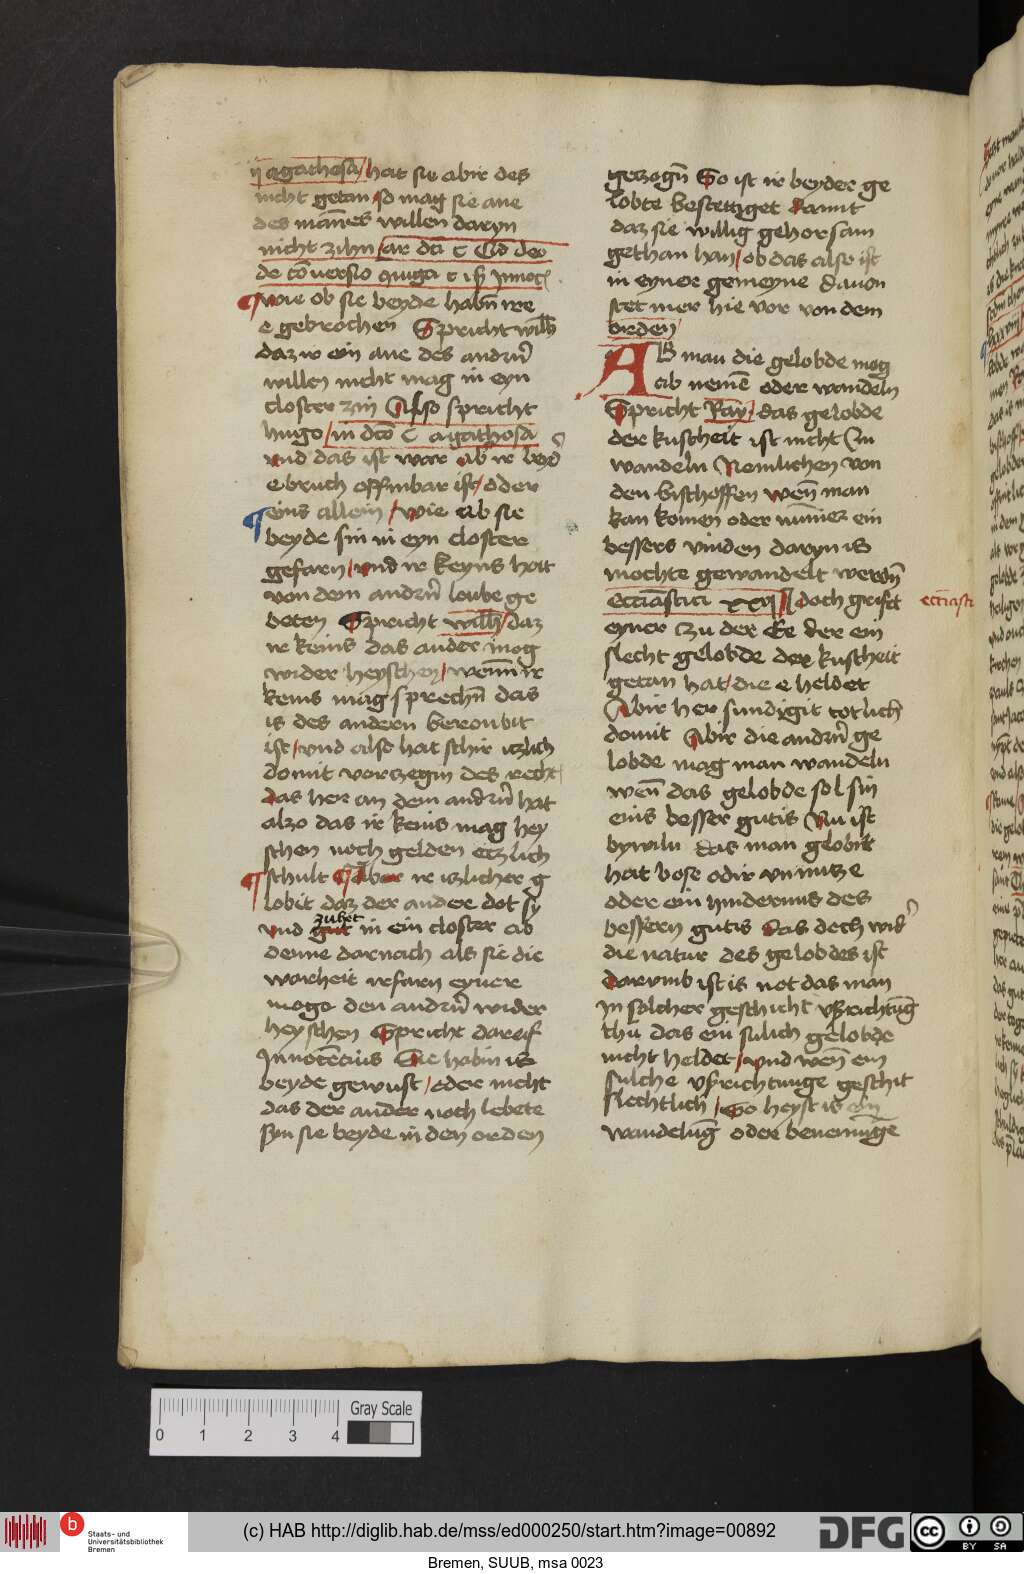 ij agathosa / hat sie abir des
nicht getan / so mag sie ane
des mannes willen daryn
nicht zihn / ar dci c Cid deo
de cōversio ɔniga c is Innoc
¶ wie ob sie beyde habn̄ ire
e gebrochen Spricht wilh
daz ir ein ane des andrn̄
willen nicht mag in eyn
closter zin Also spricht
hugo / in dcō c agathosa
vnd das ist war ab ir beyd
ebruch offinbar ist / oder
¶ eins allein / wie ab sie
beyde sin in eyn closter
gefarn / vnd ir keyns hatt
von dem andrn̄ loube ge
beten Spricht wilh / daz
ir keins das ander mog
wider heyschen / wenn ir
keins mag sprechn̄ das
is des andern beroubit
ist / vnd also hat sichir itzlich
domit vorczegin des recht
das her an dem andrn̄ hat
alzo das ir keins mag hey
schen noch gelden etzlich
¶ schult ¶ Aber ir itzlicher g
lobit daz der ander dot sy
zuhet
vnd gut in ein closter ab
denne darnach als sie die
warheit irfarn eyner
moge den andrn̄ wider
heyschen Spricht darauf
Innocēcius Sie habin is
beyde gewust / oder nicht
das der ander noch lebete
Syn sie beyde in den orden
geczogn̄ So ist ir beyder ge
lobte bestettiget damit
daz sie willig gehorsam
gethan han / ob das also ist
in eyner gemeyne dauon
stet mer hie vor von dem
orden
AB man die gelobde mog
ab nemē oder wandeln
Spricht Ray / das gelobde
der kuscheit ist nicht czu
wandeln Nemlichen von
den bischoffen wen̄ man
kan komen oder nimmer ein
bessers vinden daryn is
mochte gewandelt werdn̄
ecciastici xxvj doch grifft
ecciasti
eyner czu der Ee der ein
slecht gelobde der kuscheit
getan hat / die e heldet
Abir her sundigit totlich
domit Abir die andrn̄ ge
lobde mag man wandeln
wen̄ das gelobde sol sin
eins besser gutis Nu ist
bywiln das man globit
hat bose odir vnnutze
oder ein hindernus des
bessern gutis das dech wid
die natur des gelobdes ist
darumb ist is not das man
In solcher geschicht vsrichtūg
thu das ein sulich gelobde
nicht heldet / vnd wen̄ ein
sulche vsrichtunge geschit
slechtlich / So heyst is ein
wandelūg oder benemūge
0 1 2 3 4
Gray Scale
Staats- und
Universitätsbibliothek
Bremen
(c) HAB http://diglib.hab.de/mss/ed000250/start.htm?image=00892
DFG
cc BY SA
Bremen, SUUB, msa 0023